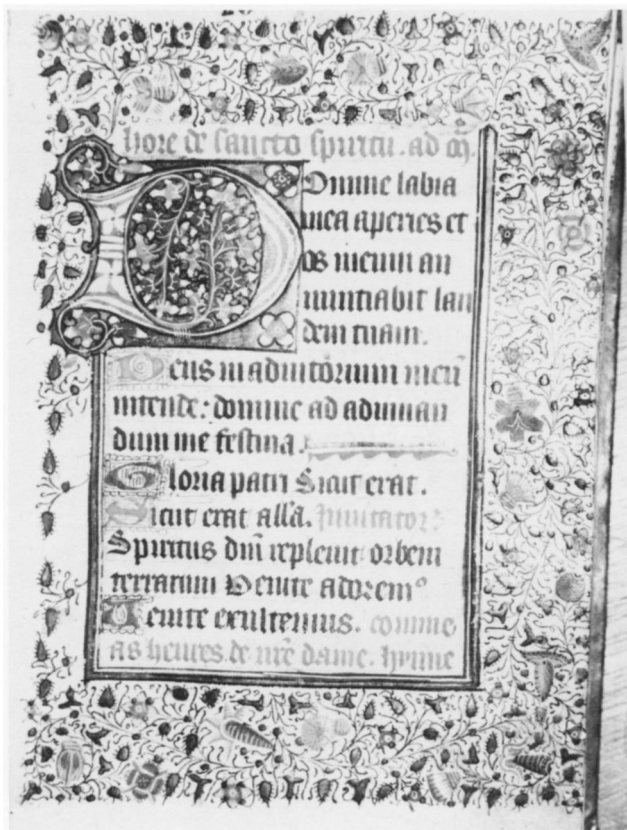 hore de sancto spiritu. ad m̃.
Domine labia
mea aperies et
os meum an
nuntiabit lau
dem tuam.
Deus in adiutorium meũ
intende: domine ad adiuuan
dum me festina.
Gloria patri Sicut erat.
Sicut erat all̃a. Inuitator̃
Spiritus dm̃ repleuit orbem
terrarum Venite adorem⁹
Uenite exultemus. comme
as heures de nr̃e dame. hymne